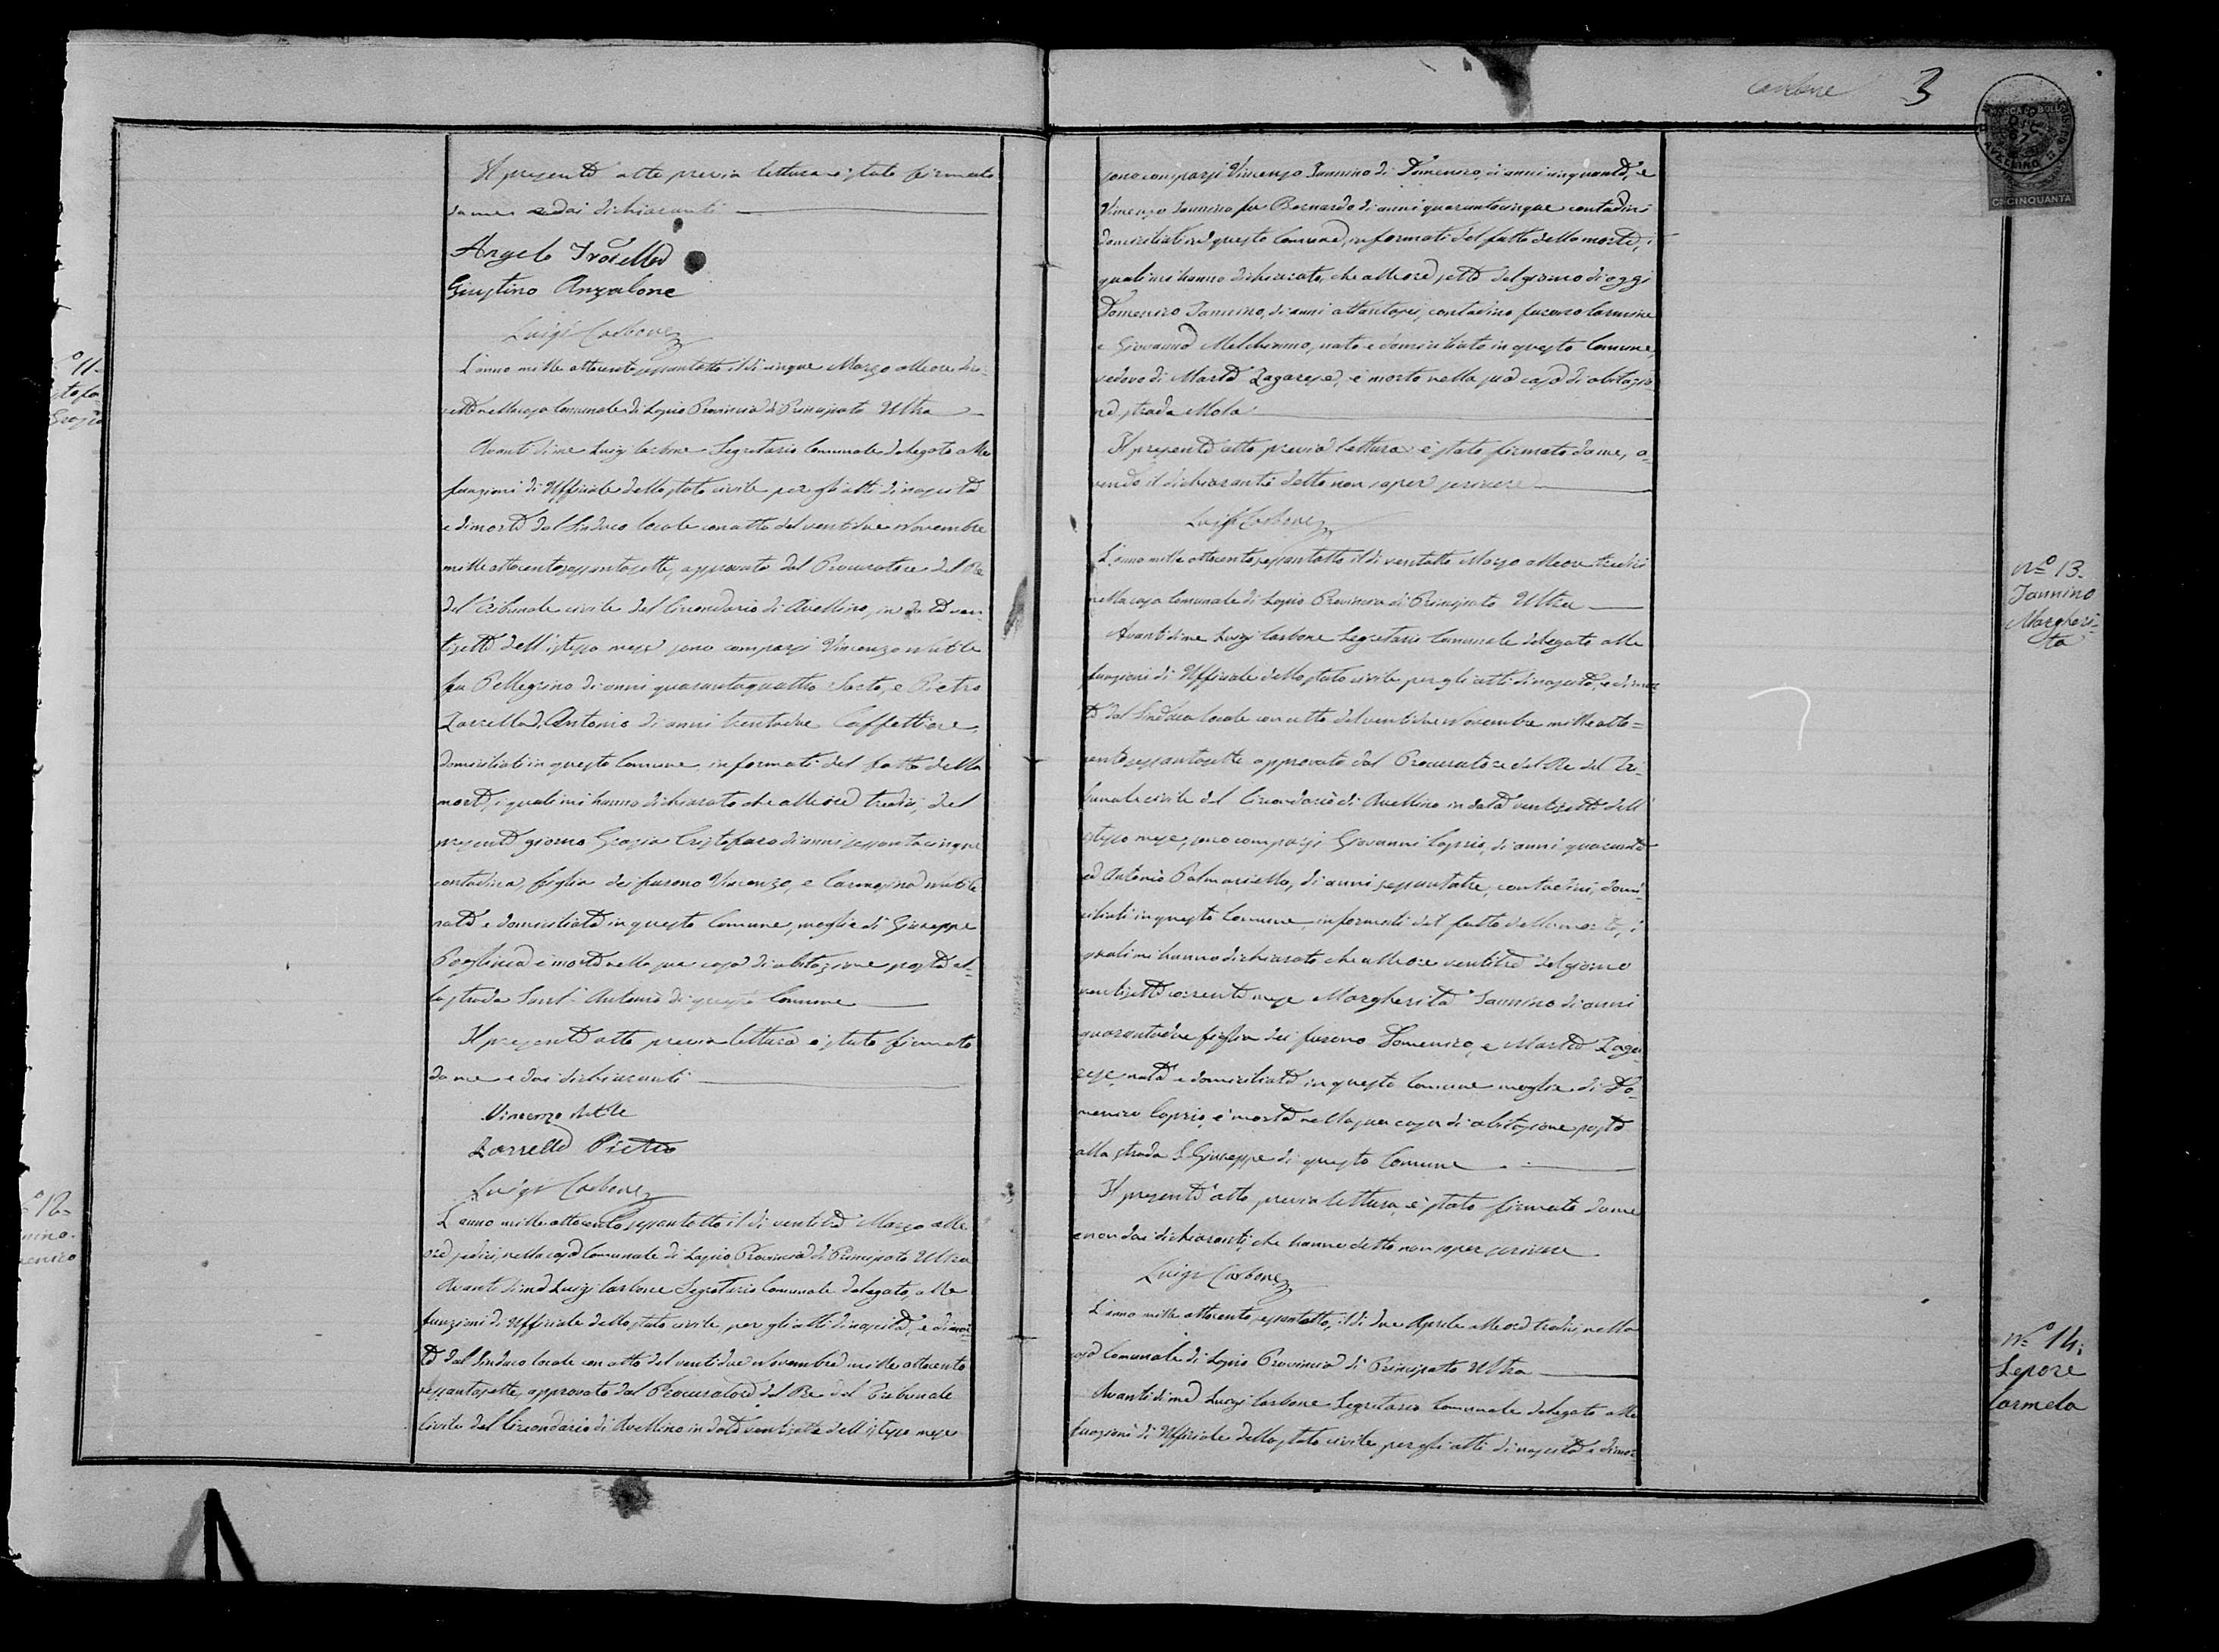 Il presente atto previa lettura è stato firmato
da me e dai dichiaranti
Angelo Trodella
Giustino Anzalone
Luigi Carbone
N° 11.
L'anno mille ottocento sessantotto il dì cinque Marzo alle ore dici-
sette nella casa Comunale di Lapio Provincia di Principato Ultra
Avanti di me Luigi Carbone Segretario Comunale delegato alle
funzioni di Uffiziale dello stato civile per gli atti di nascita
e di morte dal Sindaco locale con atto del ventidue Novembre
mille ottocentosessantasette, approvato dal Procuratore del Re
del Tribunale civile del Circondario di Avellino, in data ven-
tisette dell'istesso mese sono comparsi Vincenzo Nutile
fu Pellegrino di anni quarantaquattro Sarto, e Pietro
Zarrella di Antonio di anni trentadue Caffettiere,
domiciliati in questo Comune, informati del fatto della
morte, i quali mi hanno dichiarato che alle ore tredici, del
presente giorno Grazia Cristofaro di anni sessantacinque
contadina figlia dei furono Vincenzo, e Carmosina Nutile
nata e domiciliata in questo Comune, moglie di Giuseppe
è morta nella sua casa di abitazione posta al-
la strada Sant'Antonio di questo Comune
Il presente atto previa lettura è stato firmato
da me e dai dichiaranti
Vincenzo Nutile
Zarrella Pietro
Luigi Carbone
12.
L'anno mille ottocento sessantotto il dì ventitré Marzo alle
ore sedici, nella casa Comunale di Lapio Provincia di Principato Ultra
Avanti di me Luigi Carbone Segretario Comunale delegato, alle
funzioni di Uffiziale dello stato civile, per gli atti di nascita, e di mor-
te dal Sindaco locale con atto del ventidue Novembre mille ottocento
sessantasette, approvato dal Procuratore del Re del Tribunale
Civile del Circondario di Avellino in data ventisette dell'istesso mese
Carbone 3
MARCA DA BOLLO
AVELLINO
CINQUANTA
sono comparsi Vincenzo Iannino di Domenico, di anni cinquanta, e
Vincenzo Iannino fu Bernardo di anni quarantacinque contadini
domiciliati in questo Comune, informati del fatto della morte, i
quali mi hanno dichiarato, che alle ore sette del giorno di oggi
Domenico Iannino, di anni contadino furono Carmine
e Giovanna Melchionno, nato e domiciliato in questo Comune,
vedovo di Marta Zagarese, è morto nella sua casa di abitazio
ne strada Mola
Il presente atto previa lettura è stato firmato da me, a-
vendo i dichiaranti detto non saper scrivere
Luigi Carbone
N° 13.
Iannino
Margheri-
ta
L'anno mille ottocento sessantotto il dì ventotto Marzo alle ore tredici
nella casa Comunale di Lapio Provincia di Principato Ultra
Avanti di me Luigi Carbone Segretario Comunale delegato alle
funzioni di Uffiziale dello stato civile per gli atti di nascita, e di mor
te dal Sindaco locale con atto del ventidue Novembre mille otto=
centosessantasette approvato dal Procuratore del Re del Tri-
bunale civile del Circondario di Avellino in data ventisette dell'
istesso mese, sono comparsi Giovanni Caprio, di anni quaranta
ed Antonio Palmariello, di anni sessantatre, contadini, domi-
ciliati in questo Comune informati del fatto della morte, i
quali mi hanno dichiarato che alle ore ventitré del giorno
ventisette corrente mese Margherita Iannino di anni
quarantadue figlia dei furono Domenico, e Marta Zaga-
rese, nata e domiciliata in questo Comune moglie di Do-
menico Caprio, è morta nella sua casa di abitazione posta
alla strada S. Giuseppe di questo Comune
Il presente atto previa lettura, è stato firmato da me
e non dai dichiaranti, che hanno detto non saper scrivere
Luigi Carbone
N° 14.
Lepore
Carmela
L'anno mille ottocento sessantotto, il dì due Aprile alle ore tredici, nella
casa Comunale di Lapio Provincia di Principato Ultra
Avanti di me Luigi Carbone Segretario Comunale delegato alle
funzioni di Uffiziale dello stato civile per gli atti di nascita e di mor-